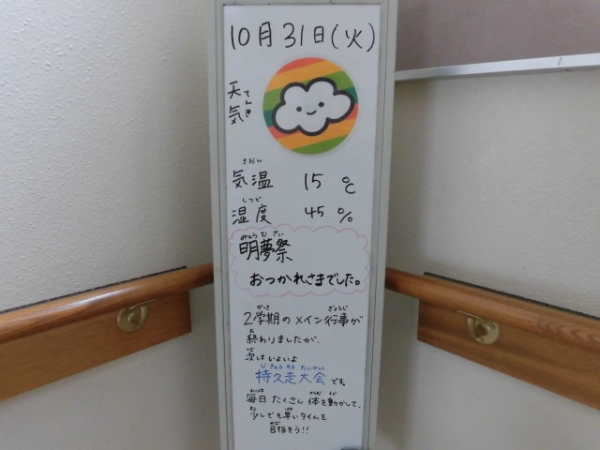 10月31日(火)
天気
てんき
きおん
気温 15 ℃
しつど
湿度 45 %
明夢祭
おつかれさまでした。
2学期のメイン行事が
終わりましたが、
次はいよいよ
持久走大会です。
毎日たくさん体を動かして、
少しでも早いタイムを
目指そう!!